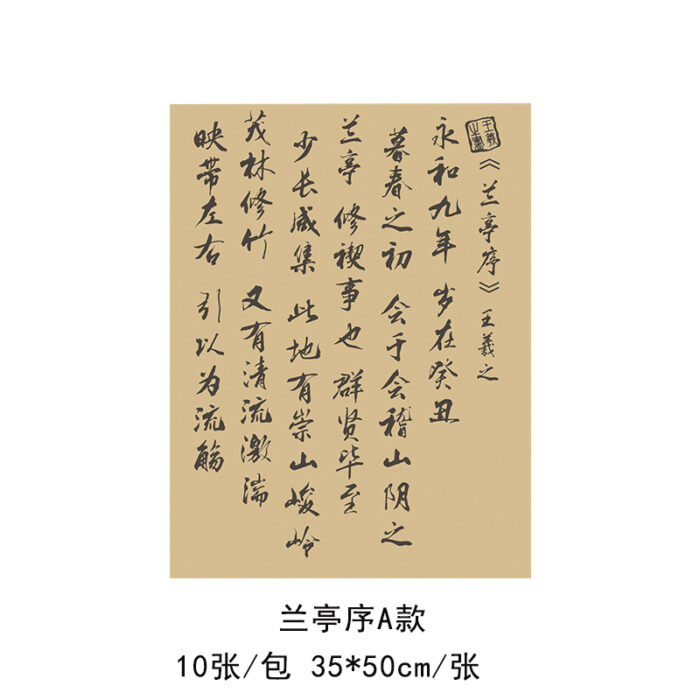 王羲之画
《兰亭序》王羲之
永和九年 岁在癸丑
暮春之初 会于会稽山阴之
兰亭 修禊事也 群贤毕至
少长咸集 此地有崇山峻岭
茂林修竹 又有清流激湍
映带左右 引以为流觞
兰亭序A款
10张/包 35*50cm/张